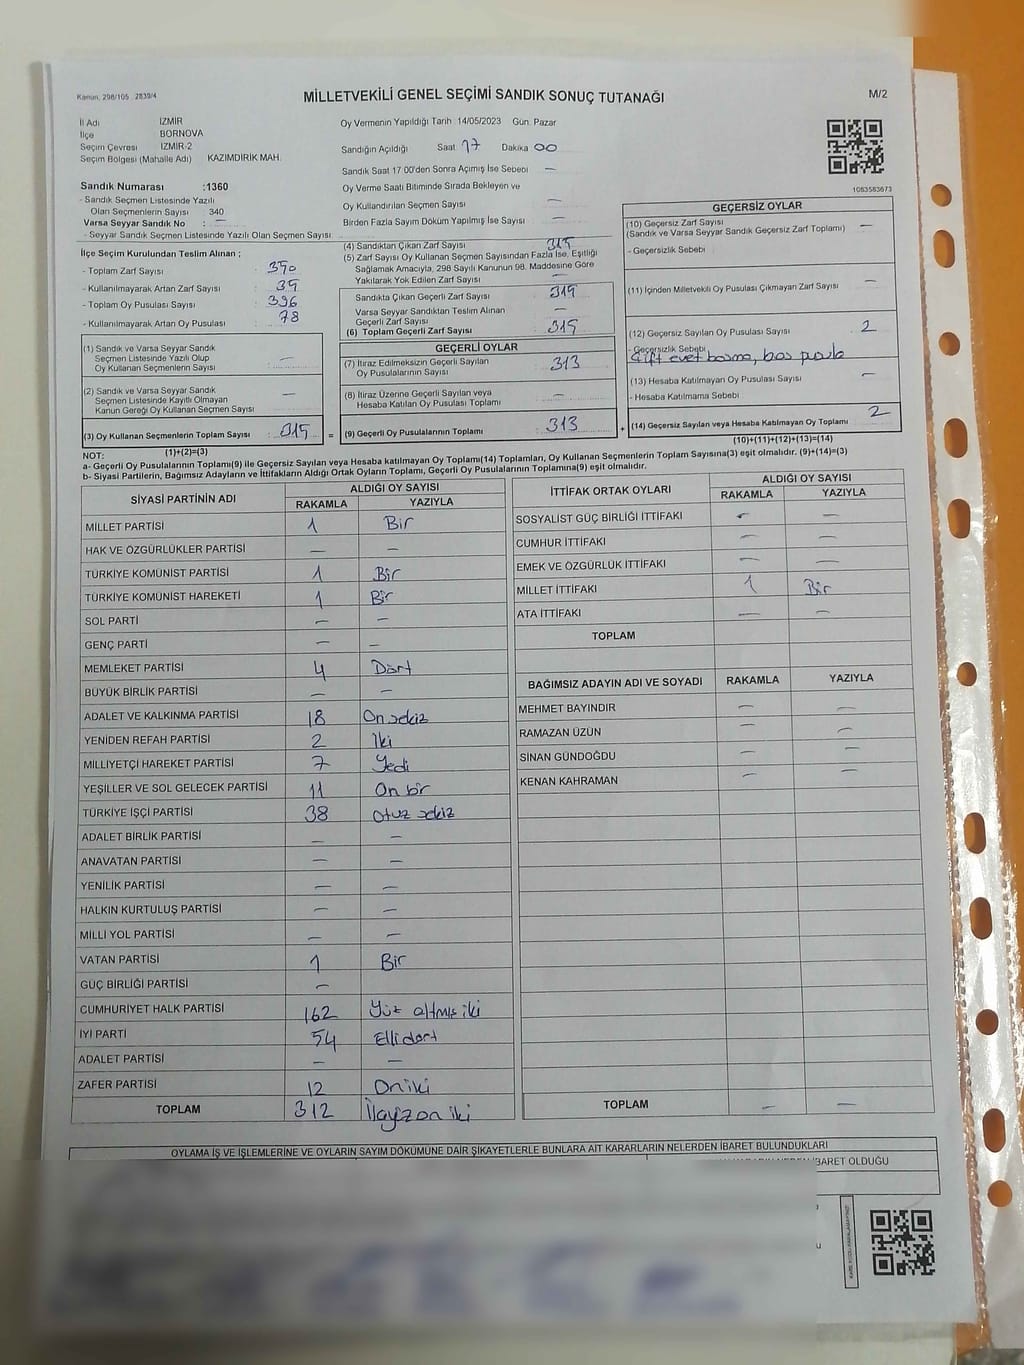 Kanun, 298/105 2839/4
MİLLETVEKİLİ GENEL SEÇİMİ SANDIK SONUÇ TUTANAĞI
M/2
İl Adı İZMİR
İlçe BORNOVA
Seçim Çevresi İZMİR-2
Seçim Bölgesi (Mahalle Adı) KAZIMDİRİK MAH.
Oy Vermenin Yapıldığı Tarih 14/05/2023 Gün. Pazar
Sandığın Açıldığı Saat 17 Dakika 00
Sandık Saat 17 00'den Sonra Açımış İse Sebebi —
Oy Verme Saati Bitiminde Sırada Bekleyen ve
Oy Kullandırılan Seçmen Sayısı —
Birden Fazla Sayım Döküm Yapılmış İse Sayısı —
1083583673
Sandık Numarası :1360
- Sandık Seçmen Listesinde Yazılı
Olan Seçmenlerin Sayısı 340
Varsa Seyyar Sandık No : —
- Seyyar Sandık Seçmen Listesinde Yazılı Olan Seçmen Sayısı:
İlçe Seçim Kurulundan Teslim Alınan ;
- Toplam Zarf Sayısı : 350
- Kullanılmayarak Artan Zarf Sayısı : 35
- Toplam Oy Pusulası Sayısı : 396
- Kullanılmayarak Artan Oy Pusulası : 78
(1) Sandık ve Varsa Seyyar Sandık
Seçmen Listesinde Yazılı Olup
Oy Kullanan Seçmenlerin Sayısı : —
(2) Sandık ve Varsa Seyyar Sandık
Seçmen Listesinde Kayıtlı Olmayan
Kanun Gereği Oy Kullanan Seçmen Sayısı : —
(3) Oy Kullanan Seçmenlerin Toplam Sayısı : 315
(1)+(2)=(3)
(4) Sandıktan Çıkan Zarf Sayısı 315
(5) Zarf Sayısı Oy Kullanan Seçmen Sayısından Fazla İse, Eşitliği
Sağlamak Amacıyla, 298 Sayılı Kanunun 98. Maddesine Göre
Yakılarak Yok Edilen Zarf Sayısı —
Sandıkta Çıkan Geçerli Zarf Sayısı 315
Varsa Seyyar Sandıktan Teslim Alınan
Geçerli Zarf Sayısı —
(6) Toplam Geçerli Zarf Sayısı : 315
GEÇERLİ OYLAR
(7) İtiraz Edilmeksizin Geçerli Sayılan
Oy Pusulalarının Sayısı : 313
(8) İtiraz Üzerine Geçerli Sayılan veya
Hesaba Katılan Oy Pusulası Toplamı : —
= (9) Geçerli Oy Pusulalarının Toplamı : 313
GEÇERSİZ OYLAR
(10) Geçersiz Zarf Sayısı —
(Sandık ve Varsa Seyyar Sandık Geçersiz Zarf Toplamı)
- Geçersizlik Sebebi
(11) İçinden Milletvekili Oy Pusulası Çıkmayan Zarf Sayısı —
(12) Geçersiz Sayılan Oy Pusulası Sayısı 2
- Geçersizlik Sebebi
Çift evet basma, boş pusula
(13) Hesaba Katılmayan Oy Pusulası Sayısı —
- Hesaba Katılmama Sebebi
+ (14) Geçersiz Sayılan veya Hesaba Katılmayan Oy Toplamı 2
(10)+(11)+(12)+(13)=(14)
NOT:
a- Geçerli Oy Pusulalarının Toplamı(9) ile Geçersiz Sayılan veya Hesaba Katılmayan Oy Toplamı(14) Toplamları, Oy Kullanan Seçmenlerin Toplam Sayısına(3) eşit olmalıdır. (9)+(14)=(3)
b- Siyasi Partilerin, Bağımsız Adayların ve İttifakların Aldığı Ortak Oyların Toplamı, Geçerli Oy Pusulalarının Toplamına(9) eşit olmalıdır.
SİYASİ PARTİNİN ADI ALDIĞI OY SAYISI
RAKAMLA YAZIYLA
MİLLET PARTİSİ 1 Bir
HAK VE ÖZGÜRLÜKLER PARTİSİ — —
TÜRKİYE KOMÜNİST PARTİSİ 1 Bir
TÜRKİYE KOMÜNİST HAREKETİ 1 Bir
SOL PARTİ — —
GENÇ PARTİ — —
MEMLEKET PARTİSİ 4 Dört
BÜYÜK BİRLİK PARTİSİ — —
ADALET VE KALKINMA PARTİSİ 18 On sekiz
YENİDEN REFAH PARTİSİ 2 İki
MİLLİYETÇİ HAREKET PARTİSİ 7 Yedi
YEŞİLLER VE SOL GELECEK PARTİSİ 11 On bir
TÜRKİYE İŞÇİ PARTİSİ 38 otuz sekiz
ADALET BİRLİK PARTİSİ — —
ANAVATAN PARTİSİ — —
YENİLİK PARTİSİ — —
HALKIN KURTULUŞ PARTİSİ — —
MİLLİ YOL PARTİSİ — —
VATAN PARTİSİ 1 Bir
GÜÇ BİRLİĞİ PARTİSİ —
CUMHURİYET HALK PARTİSİ 162 Yüz altmış iki
İYİ PARTİ 54 Elli dört
ADALET PARTİSİ — —
ZAFER PARTİSİ 12 On iki
TOPLAM 312
İTTİFAK ORTAK OYLARI ALDIĞI OY SAYISI
RAKAMLA YAZIYLA
SOSYALİST GÜÇ BİRLİĞİ İTTİFAKI — —
CUMHUR İTTİFAKI — —
EMEK VE ÖZGÜRLÜK İTTİFAKI — —
MİLLET İTTİFAKI 1 Bir
ATA İTTİFAKI — —
TOPLAM
BAĞIMSIZ ADAYIN ADI VE SOYADI RAKAMLA YAZIYLA
MEHMET BAYINDIR — —
RAMAZAN ÜZÜN — —
SİNAN GÜNDOĞDU — —
KENAN KAHRAMAN — —
TOPLAM — —
OYLAMA İŞ VE İŞLEMLERİNE VE OYLARIN SAYIM DÖKÜMÜNE DAİR ŞİKAYETLERLE BUNLARA AİT KARARLARIN NELERDEN İBARET BULUNDUKLARI
İBARET OLDUĞU